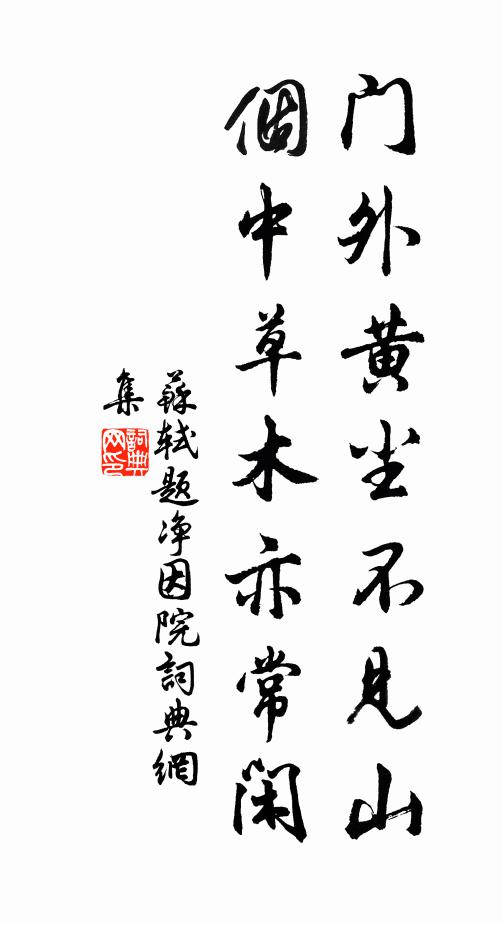 门外黄尘不见山
個中草木亦常閑
蘇轼题净因院詞典網
集
詞典
网印